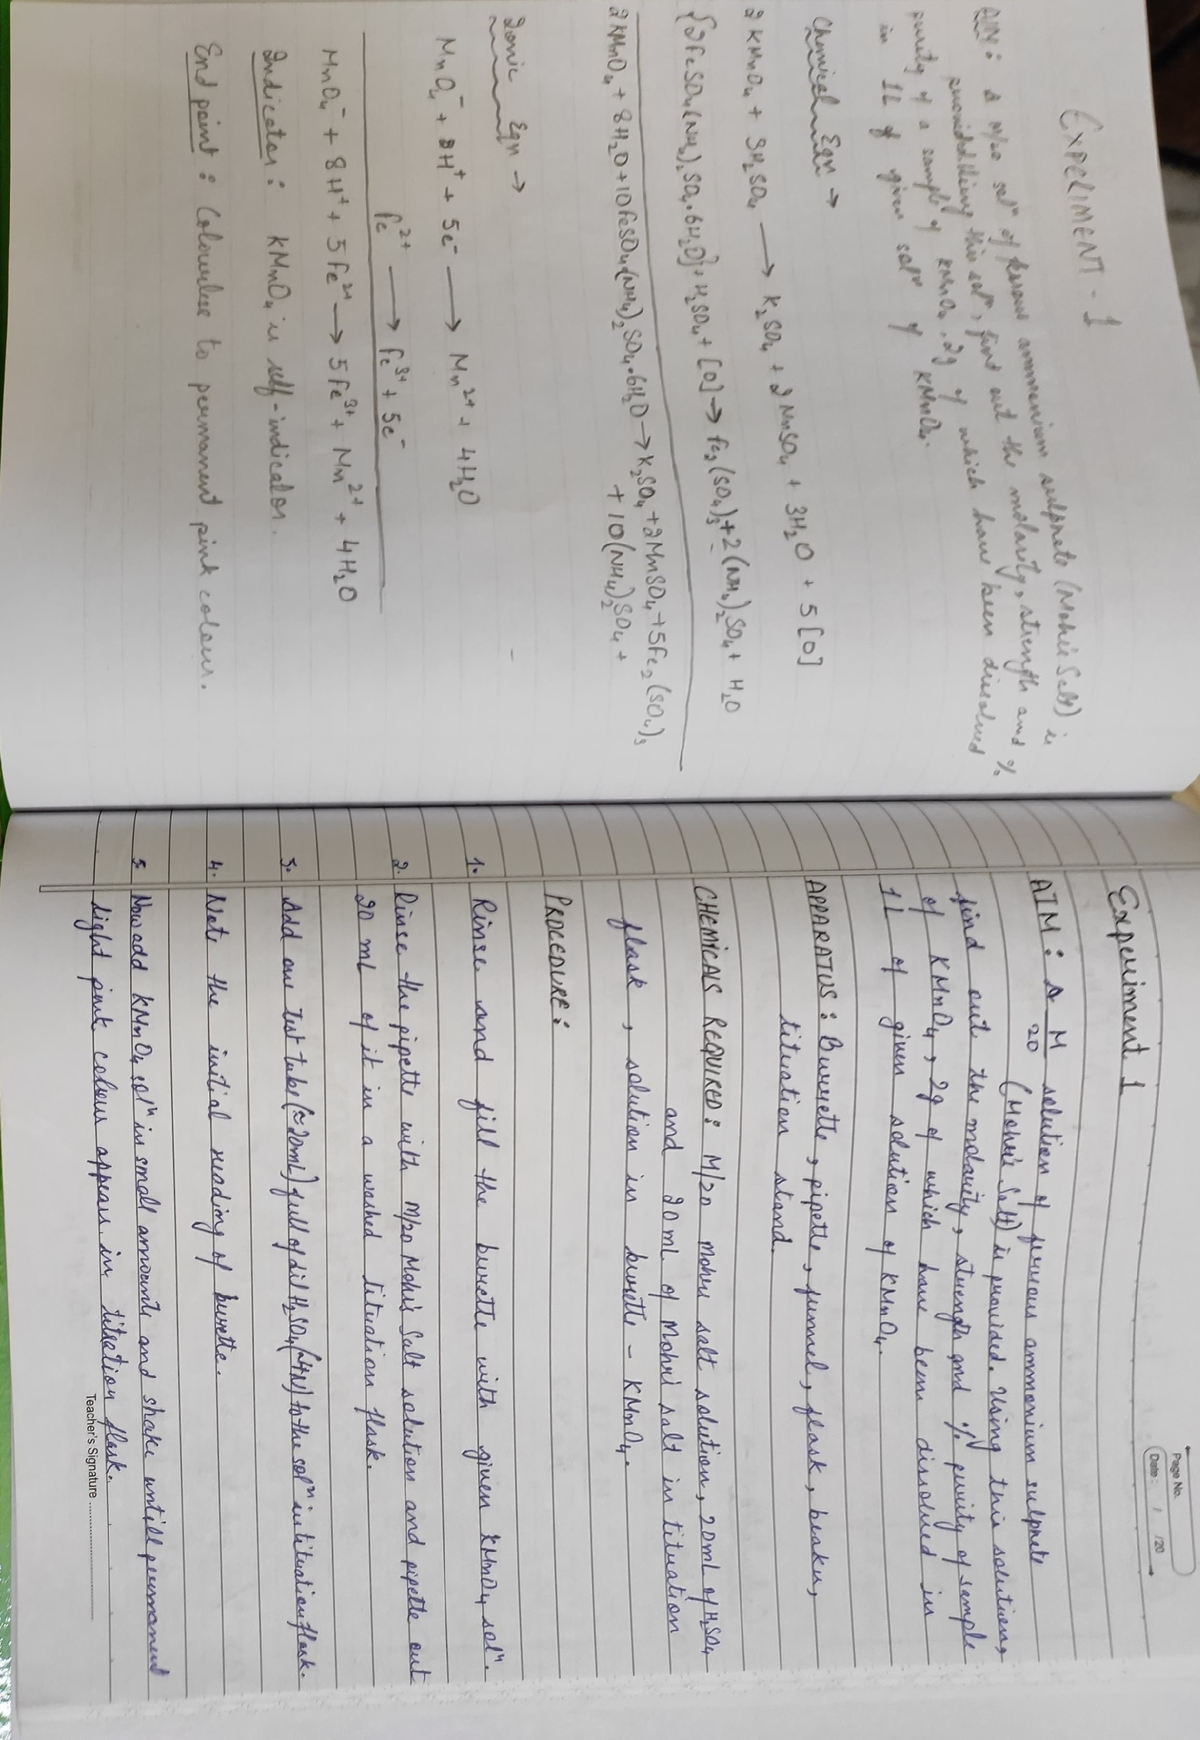 EXPERIMENT - 1
AIM: A M/20 solⁿ of ferrous ammonium sulphate (Mohr's Salt) is
provided. Using this solⁿ, find out the molarity, strength and %
purity of a sample of KMnO₄, 2g of which have been dissolved
in 1L of given solⁿ of KMnO₄.
Chemical Eqn →
2KMnO₄ + 3H₂SO₄ ⟶ K₂SO₄ + 2MnSO₄ + 3H₂O + 5[O]
{2FeSO₄(NH₄)₂SO₄·6H₂O} + H₂SO₄ + [O] → Fe₂(SO₄)₃ + 2(NH₄)₂SO₄ + H₂O
2KMnO₄ + 8H₂O + 10FeSO₄(NH₄)₂SO₄·6H₂O → K₂SO₄ + 2MnSO₄ + 5Fe₂(SO₄)₃
+ 10(NH₄)₂SO₄ +
Ionic Eqn →
MnO₄⁻ + 8H⁺ + 5e⁻ ⟶ Mn²⁺ + 4H₂O
Fe²⁺ ⟶ Fe³⁺ + 5e⁻
MnO₄⁻ + 8H⁺ + 5Fe²⁺ ⟶ 5Fe³⁺ + Mn²⁺ + 4H₂O
Indicator: KMnO₄ is self-indicator.
End point: Colourless to permanent pink colour.
Page No.
Date: / /20
Experiment 1
AIM: A M/20 solution of ferrous ammonium sulphate
(Mohr's Salt) is provided. Using this solution,
find out the molarity, strength and % purity of sample
of KMnO₄, 2g of which have been dissolved in
1L of given solution of KMnO₄.
APPARATUS: Burette, pipette, funnel, flask, beaker,
titration stand.
CHEMICALS REQUIRED: M/20 mohrs salt solution, 20mL of H₂SO₄
and 20mL of Mohr's salt in titration
flask, solution in burette - KMnO₄.
PROCEDURE:
1. Rinse and fill the burette with given KMnO₄ solⁿ.
2. Rinse the pipette with M/20 Mohr's Salt solution and pipette out
20 mL of it in a washed titration flask.
3. Add one test tube (≈20mL) full of dil H₂SO₄ (~4N) to the solⁿ in titration flask.
4. Note the initial reading of burette.
5. Now add KMnO₄ solⁿ in small amounts and shake untill permanent
light pink colour appears in titration flask.
Teacher's Signature